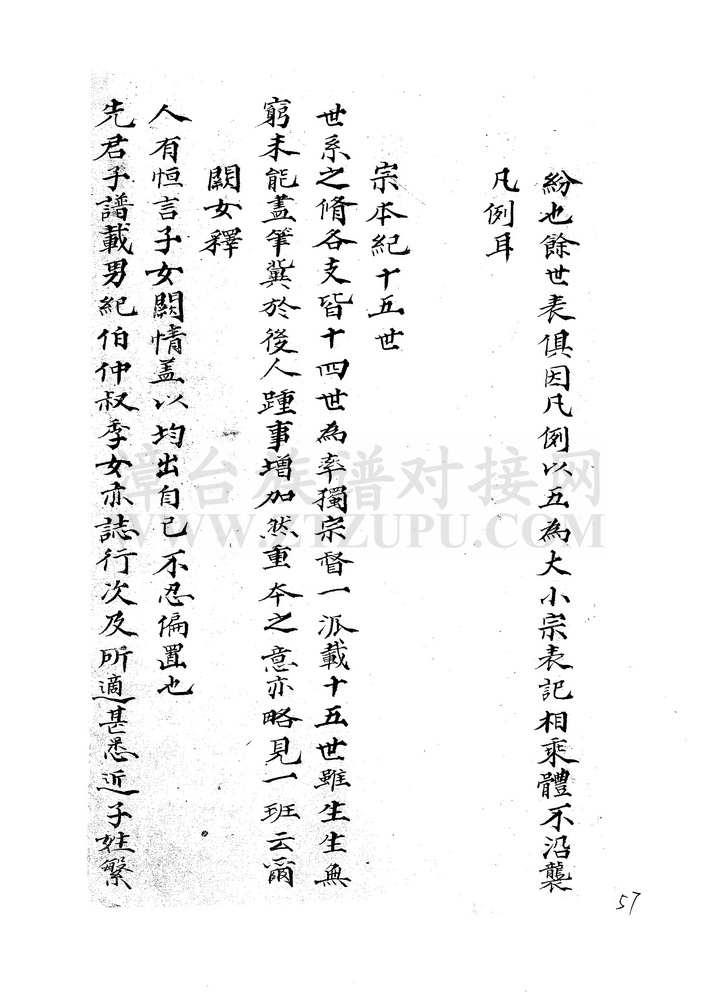 紛也餘世表俱因凡例以五為大小宗表記相乘體不沿襲
凡例耳
宗本紀十五世
世系之脩各支皆十四世為率獨宗督一派載十五世雖生生無
窮未能盖筆冀於後人踵事增加然重本之意亦略見一班云爾
闕女釋
人有恒言子女闕情盖以均出自己不忍偏置也
先君子譜載男紀伯仲叔季女亦誌行次及所適甚悉近子姓繁
漳台族谱对接网
WWW.ZTZUPU.COM
57